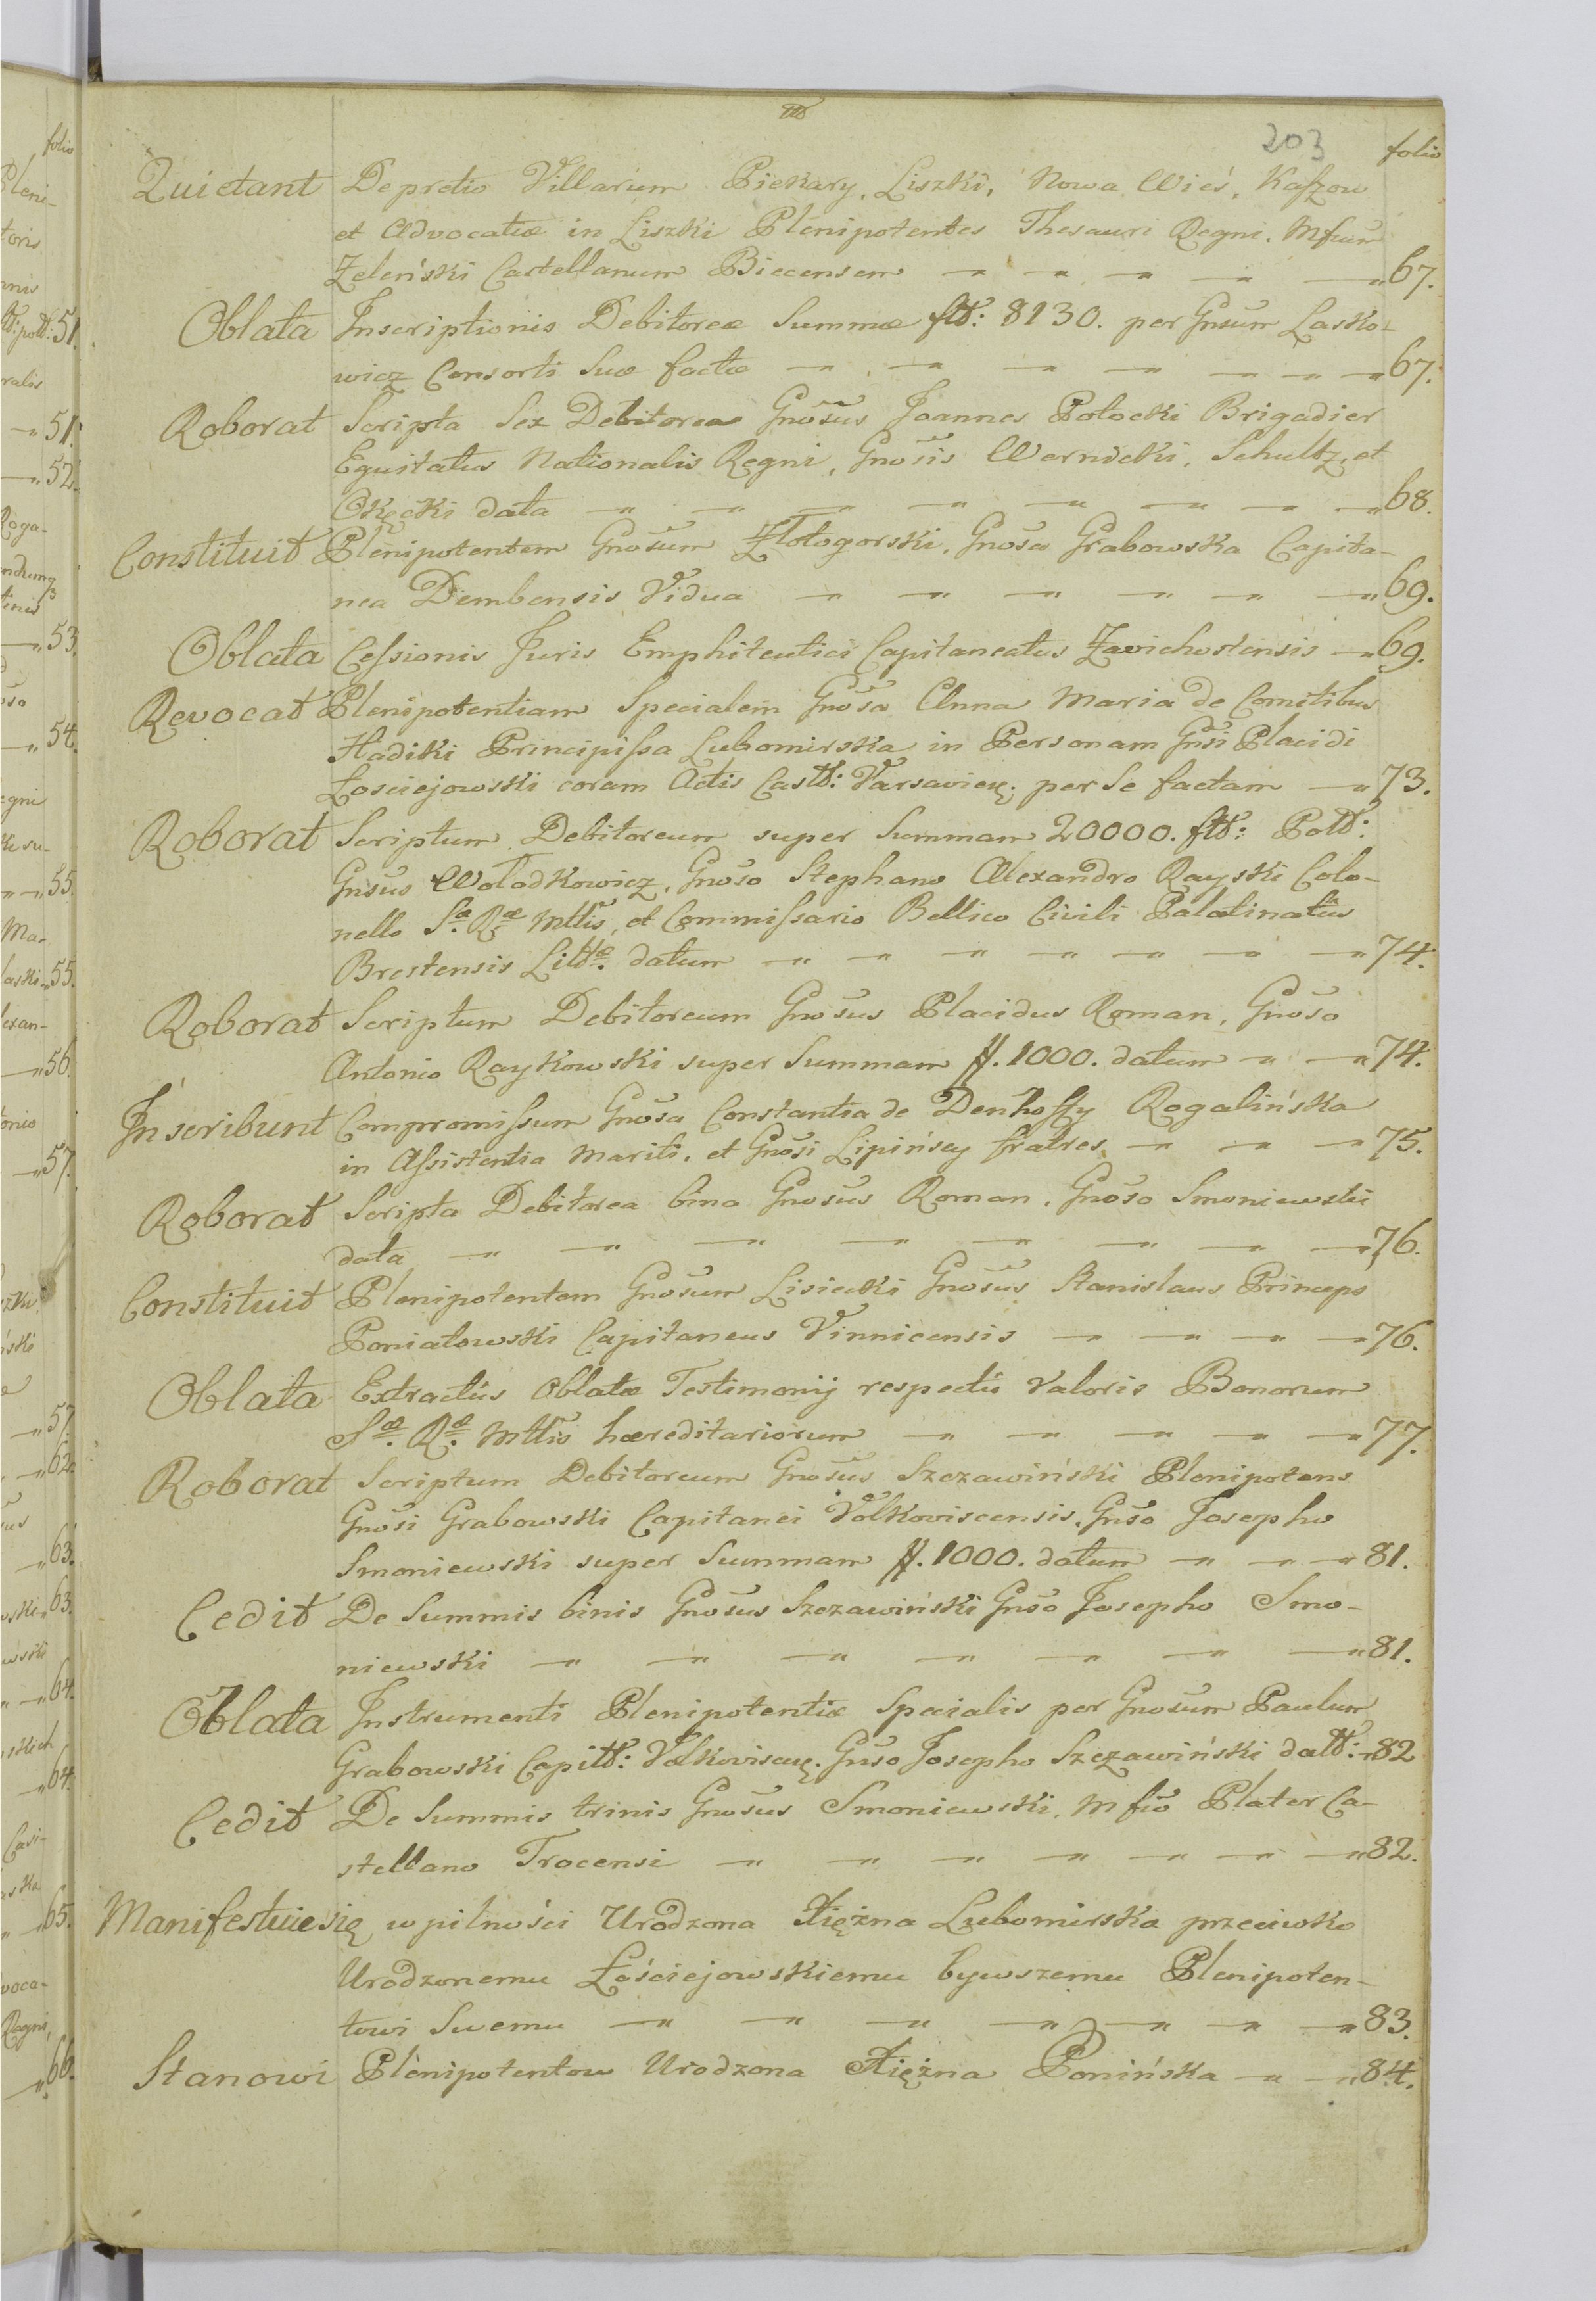 203
folio
Quietant De pretio Villarum Piekary, Liszki, Nowa Wieś, Kaszow
et Advocatiæ in Liszki Plenipotentes Thesauri Regni. Mfcum
Zeleński Castellanum Biecensem 67.
Oblata Inscriptionis Debitoreæ Summæ flt: 8130. per Gnsum Lasko-
wicz Consorti Suæ factæ 67.
Roborat Scripta Sex Debitorea Gnosus Joannes Potocki Brigadier
Equitatus Nationalis Regni, Gnosis Wernicki, Schultz, et
Okęcki data 68.
Constituit Plenipotentem Gnosum Złotogorski, Gnosa Grabowska Capita-
nea Dembensis Vidua 69.
Oblata Cessionis Juris Emphiteutici Capitaneatus Zavichostensis 69.
Revocat Plenipotentiam Specialem Gnosa Anna Maria de Comitibus
Hadiki Principissa Lubomirska in Personam Gnsi Placidi
Łosciejowski coram Actis Castt: Varsavien; per Se factam 73.
Roborat Scriptum Debitoreum super Summam 20000. flt: Poltt:
Gnsus Wołodkowicz, Gnoso Stephano Alexandro Rayski Colo-
nello Sæ. Ræ. Mttis, et Commissario Bellico Civili Palatinatus
Brestensis Littæ. datum 74.
Roborat Scriptum Debitoreum Gnosus Placidus Roman, Gnoso
Antonio Raykowski super Summam ff. 1000. datum 74.
Inscribunt Compromissum Gnosa Constantia de Denhoffy Rogalińska
in Assistentia Mariti, et Gnosi Lipińscy fratres 75.
Roborat Scripta Debitorea bina Gnosus Roman, Gnoso Smoniewski
data 76.
Constituit Plenipotentem Gnosum Lisiecki Gnosus Stanislaus Princeps
Poniatowski Capitaneus Vinnicensis 76.
Oblata Extractus Oblatæ Testimonij respectu Valoris Bonorum
Sæ. Ræ. Mttis hæreditariorum 77.
Roborat Scriptum Debitoreum Gnosus Szczawiński Plenipotens
Gnosi Grabowski Capitanei Volkoviscensis, Gnso Josepho
Smoniewski super Summam ff. 1000. datum 81.
Cedit De Summis binis Gnosus Szczawiński Gnso Josepho Smo-
niewski 81.
Oblata Instrumenti Plenipotentiæ Specialis per Gnosum Paulum
Grabowski Capitt: Volkoviscen. Gnso Josepho Szczawiński datt: 82
Cedit De Summis trinis Gnosus Smoniewski, Mfco Plater Ca-
stellano Trocensi 82.
Manifestuie się w pilności Urodzona Xiężna Lubomirska przeciwko
Urodzonemu Łościejowskiemu bywszemu Plenipoten-
towi Swemu 83.
Stanowi Plenipotentow Urodzona Xiężna Ponińska 84.